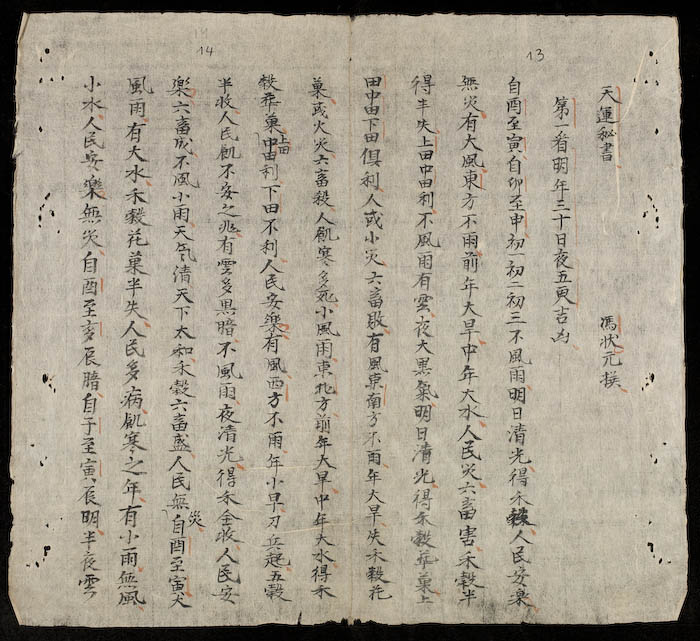 13
天運秘書 馮狀元撰
第一看明年三十日夜五更吉凶
自酉至寅自卯至申初一初二初三不風雨明日清光得禾穀人民安楽
無災有大風東方不雨前年大旱中年大水人民災六畜害禾穀半
得半失上田中田利不風雨有雲夜大黒氣明日清光得禾穀華菓上
田中田下田俱利人或小災六畜散有風東南方不雨年大旱失禾穀花
菓或火災六畜殺人飢寒多死小風雨東北方前年大旱中年大水得禾
14
穀華菓上田中田利下田不利人民安楽有風西方不雨年小旱刀兵起五穀
半收人民飢不安之兆有雲多黒暗不風雨夜清光得禾全收人民安
楽六畜成不風小雨天氣清天下太和禾穀六畜盛人民無災自酉至寅犬
風雨有大水禾穀花菓半失人民多病飢寒之年有小雨無風
小水人民安樂無災自酉至亥辰暗自子至寅辰明半夜雲